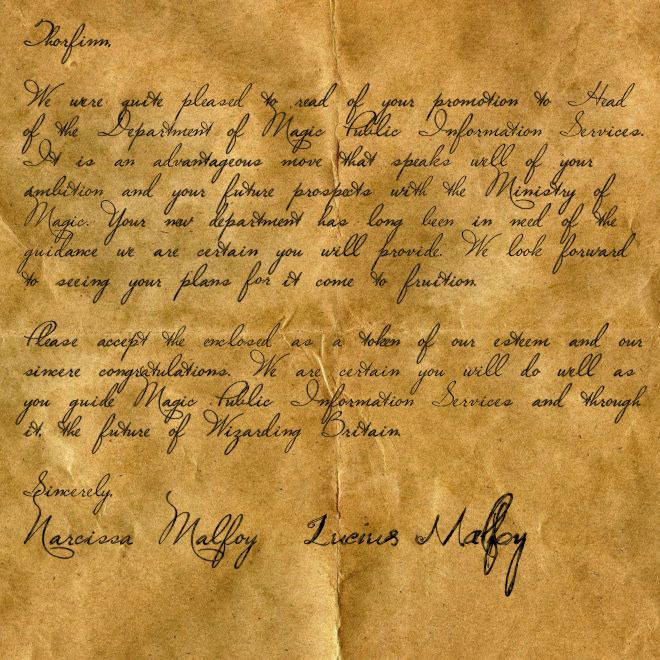 Thorfinn,
We were quite pleased to read of your promotion to Head
of the Department of Magic Public Information Services.
It is an advantageous move that speaks well of your
ambition and your future prospects with the Ministry of
Magic. Your new department has long been in need of the
guidance we are certain you will provide. We look forward
to seeing your plans for it come to fruition.
Please accept the enclosed as a token of our esteem and our
sincere congratulations. We are certain you will do well as
you guide Magic Public Information Services and through
it, the future of Wizarding Britain.
Sincerely,
Narcissa Malfoy Lucius Malfoy